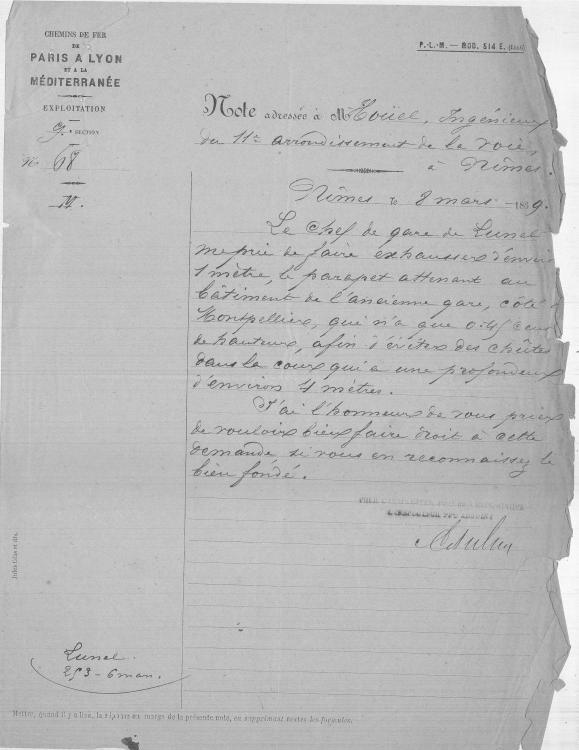 CHEMINS DE FER
DE
PARIS A LYON
ET A LA
MÉDITERRANÉE
EXPLOITATION
9e SECTION
No 68
M.
P.-L.-M. — MOD. 514 E.
Note adressée à Mr Hoüel, Ingénieur
du 11e arrondissement de la voie,
à Nîmes.
Nîmes le 8 mars 1889.
Le Chef de gare de Lunel
me prie de faire exhausser d'environ
1 mètre, le parapet attenant au
bâtiment de l'ancienne gare, côté
Montpellier, qui n'a que 0.45 cent
de hauteur, afin d'éviter des chûtes
dans la cour qui a une profondeur
d'environ 4 mètres.
J'ai l'honneur de vous prier
de vouloir bien faire droit à cette
demande si vous en reconnaissez le
bien fondé.
POUR L'INSPECTEUR PRINCIPAL
L'INSPECTEUR ADJOINT
Lunel
253 - 6 mars.
Mettre, quand il y a lieu, la réponse en marge de la présente note, en supprimant toutes les formules.